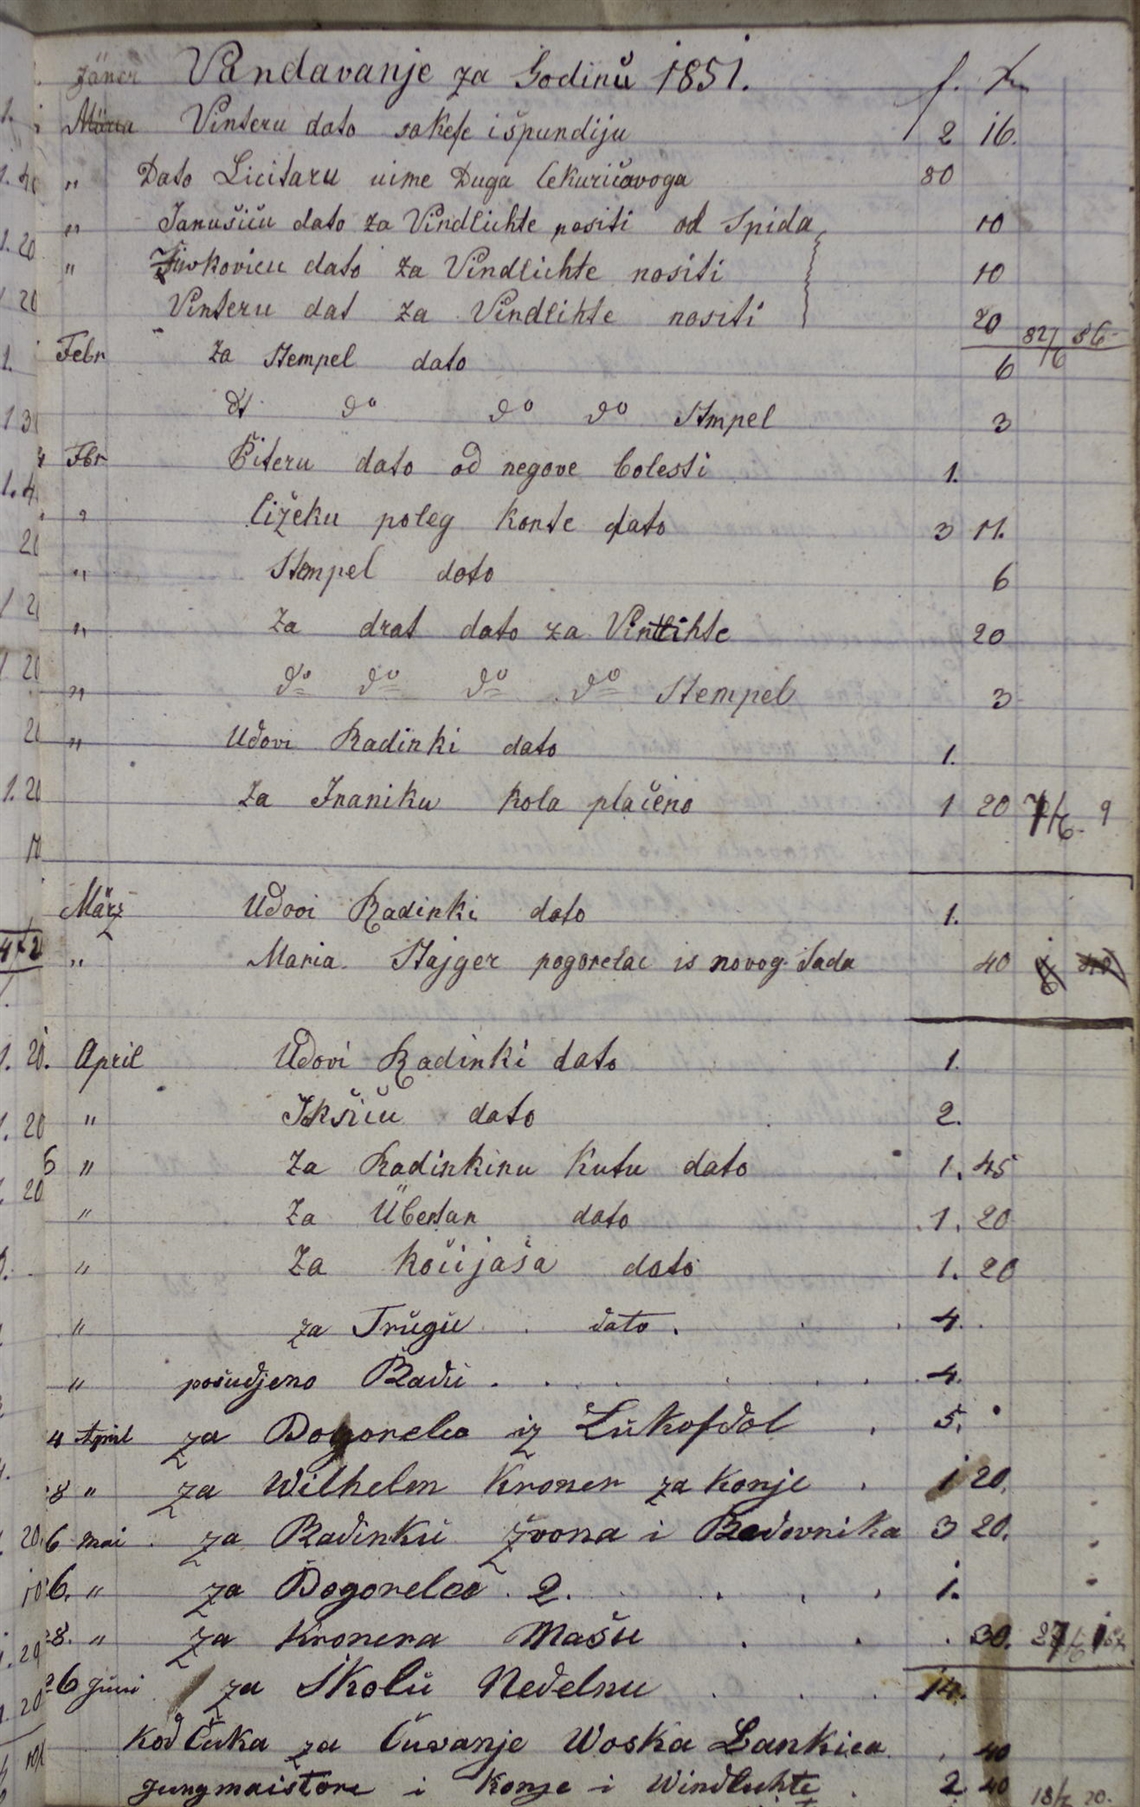 Jäner Vandavanje za Godinu 1851. f. x
Vinteru dato sokefe i špundiju 2 16.
" Dato Licitaru uime Duga 80
" Janušiću dato za Vindlichte nositi od Spida 10
" Živkovicu dato za Vindlichte nositi 10
Vinteru dat za Vindlihte nositi 20 82/6 56
Febr za Stempel dato 6
dt do do do Stmpel 3
Fbr Piteru dato od negove bolesti 1.
" Cižeku poleg Konte dato 3 11.
" Stempel dato 6
" Za drat dato za Vintlihte 20
" do do do do Stempel 3
" Udovi Radinki dato 1.
Za Inaniku Kola plačeno 1 20 7/6 9
März Udovi Radinki dato 1.
" Maria Stajger pogorelac is novog Sada 40
April Udovi Radinki dato 1.
" Ikšiću dato 2.
" Za Radinkinu Kutu dato 1. 45
" Za Übertan dato 1. 20
" Za Kočijaša dato 1. 20
" za Trugu dato. 4.
" posudjeno Radi 4.
4 April za Pogorelca iz Lukofdol 5.
8 " za Wilhelm Kroner za Konje 1 20.
6 mai za Radinku Zvona i Redovnika 3 20.
6. " za Pogorelca 2. 1.
8. " za Kronera Mašu 30. 27/6
26 Juni za Skolu Nedelnu 14.
Kod Čuka za Čuvanje Woska Lankica 40
Jungmaistore i Konje i Windluhte 2 40 18/6 20.